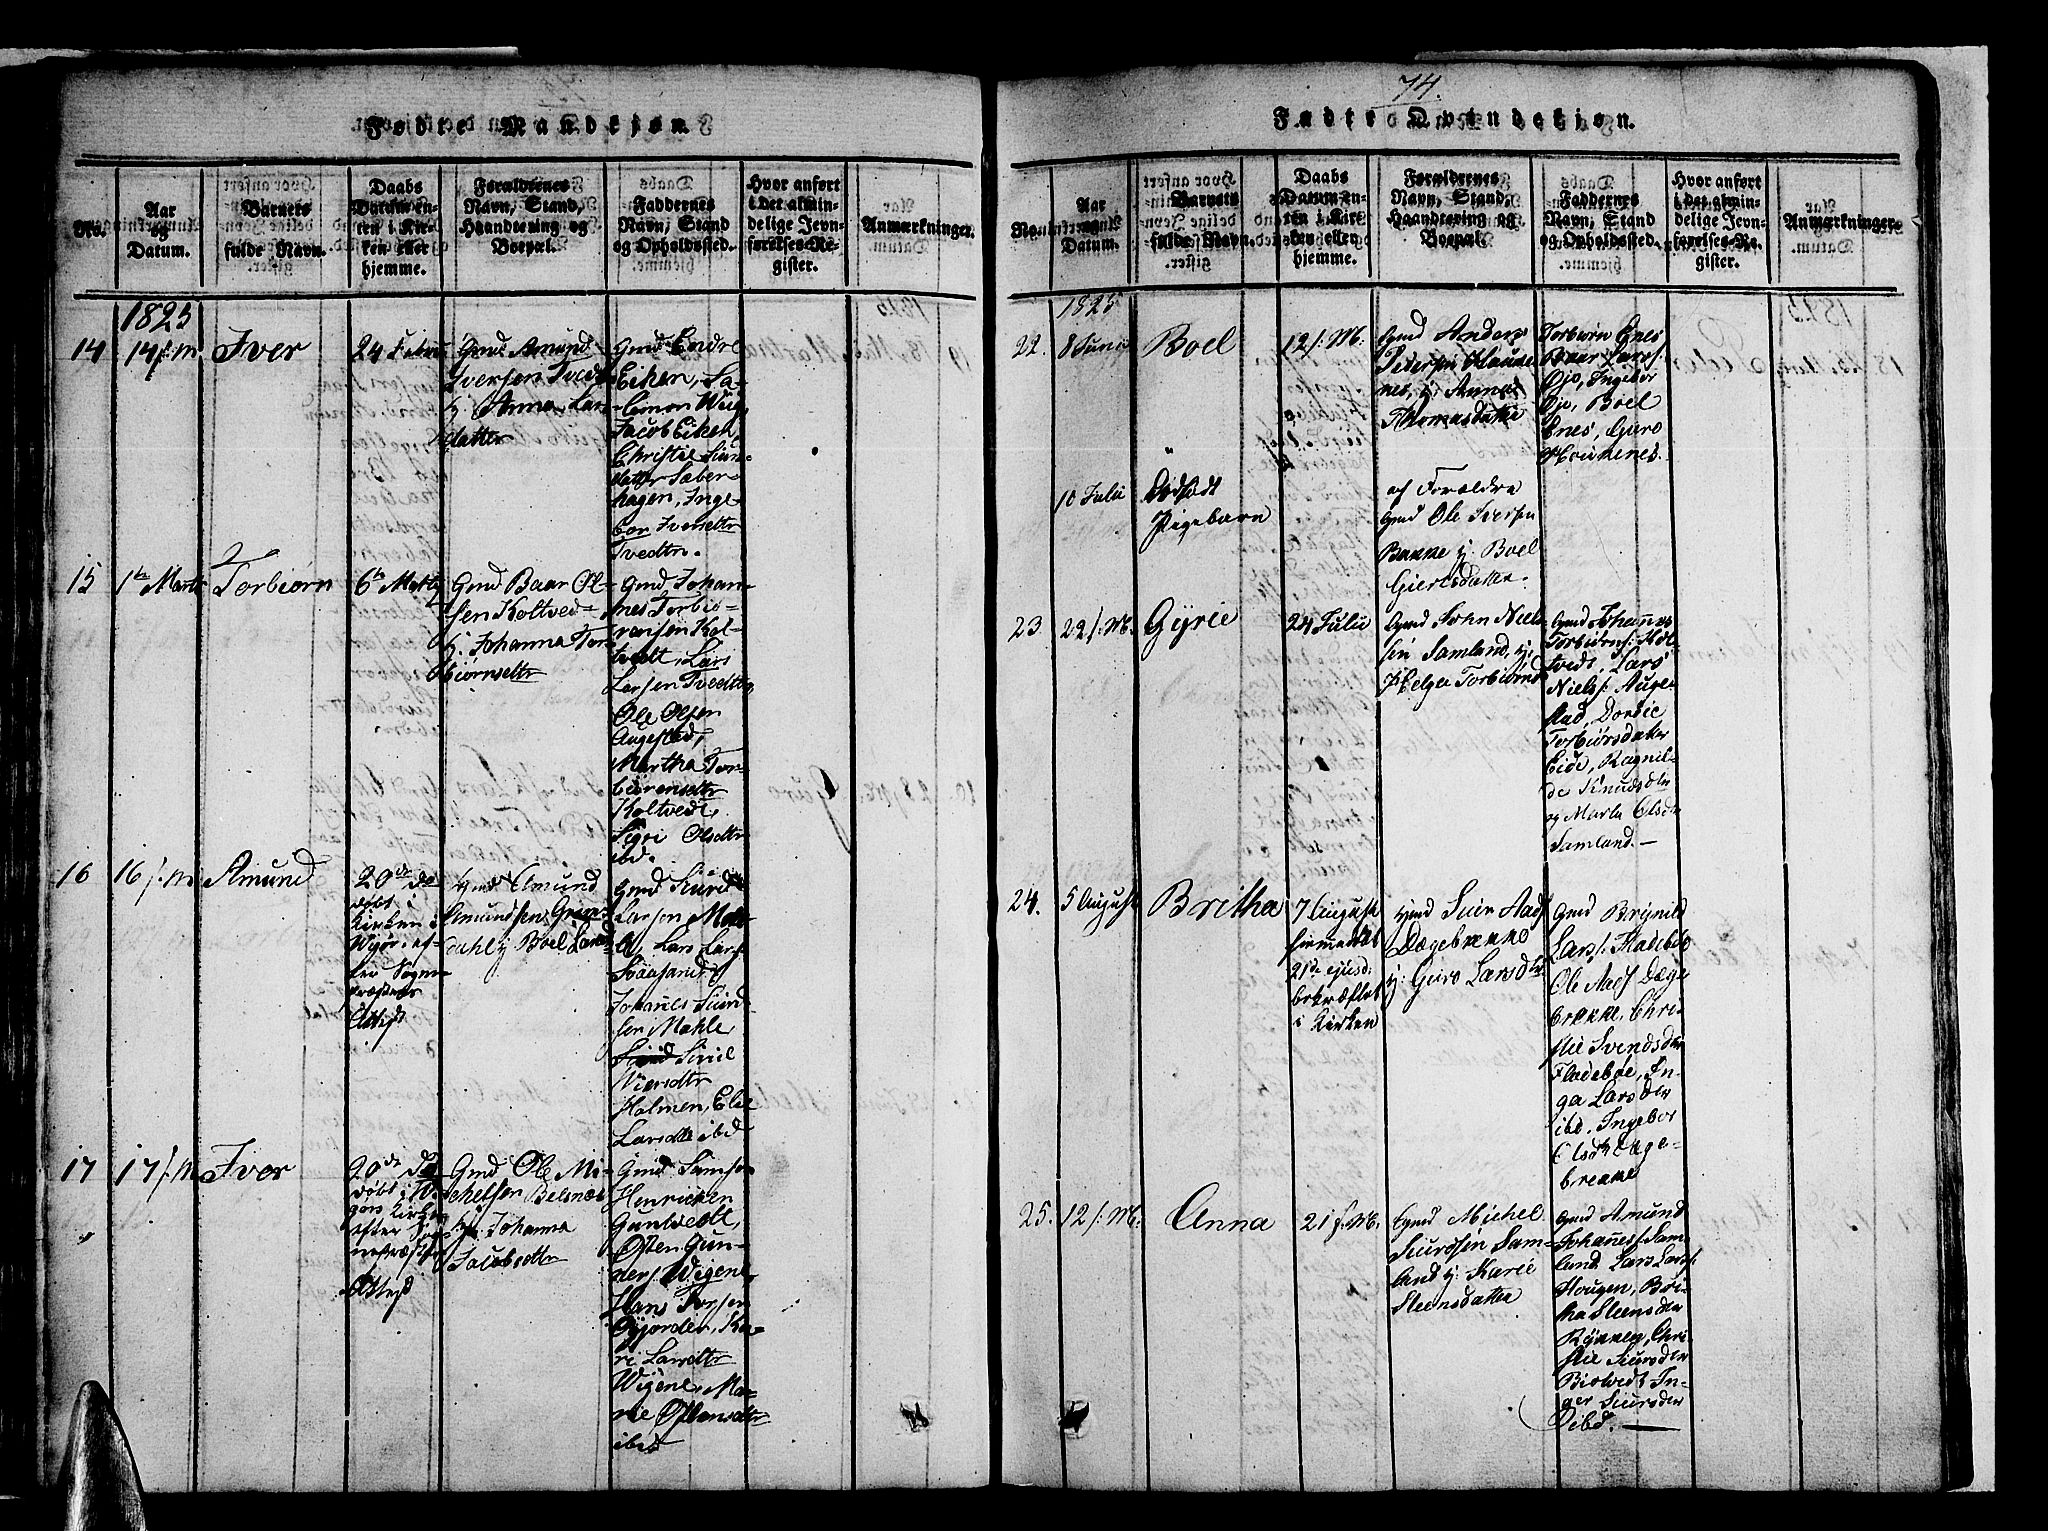 74.
Fødte Mandkiøn.
No.
Aar
og
Datum.
Barnets
fulde Navn.
Daabs
Datum en-
ten i Kir-
ken eller
hjemme.
Forældrenes
Navn, Stand,
Haandtering og
Boepæl.
Faddernes
Navn, Stand
og Opholdssted.
Hvor anført
i det almin-
delige Jevn-
førelses-Re-
gister.
Anmærkninger.
1825
14
14 f. m.
Iver
24 Febru
Gmd Amund
Iversen Tvedt
h. Anna Lars
datter
Gmd Endre
Eiken, Sa-
lomon Wiig,
Jacob Eiken,
Christie Siur-
datter Sæber-
hagen, Inge
bor Iversdtr
Tvedtn.
15
1te Marts
Torbiørn
6te Marts
Gmd Baar Ol-
sen Koltved-
h. Johanna Tor
biørnsdtr
Gmd Johan-
nes Torbiø-
rnsen Kol-
tvedt, Lars
Larsen Tvedt
Ole Olsen
Augestad,
Martha Tor-
biørensdtr
Koltvedt,
Sigri Olsdtr
ibd.
16
16 f. m.
Amund
20de do
døbt
Kirken i
Wigør ef-
ter Sogne
præstens
Attest
Gmd Amund
Amundsen Grøn-
dahl h Boel Larsd
Gmd Siurd
Larsen Mah-
le, Lars Lars
Svaasand
Johanes Siurd-
sen Mahle
Siri
Iversdtr
Holmen, Eli
Larsdtr ibd
17
17 f. M
Iver
20de do
døbt i Wi-
gørs Kirke
efter Sog-
nepræstens
Attest
Gmd Ole Mi-
chelsen Belsnæs
h. Johanna
Jacobsdtr
Gmd Samson
Henricksen
Guntvedt,
Østen Gun-
ners. Wigene
Hans Torsen
Gjorder, Ka-
ri Larsdtr
Wigene, Ma-
rie Østensdtr
ibid
Fødte Qvindekiøn.
No.
Aar
og
Datum.
Barnets
fulde Navn.
Daabs
Datum en-
ten i Kir-
ken eller
hjemme.
Forældrenes
Navn, Stand,
Haandtering og
Boepæl.
Faddernes
Navn, Stand
og Opholdssted.
Hvor anført
i det almin-
delige Jevn-
førelses-Re-
gister.
Anmærkninger.
1825
22.
8 Juni
Boel
12 f. M.
Gmd Anders
Pedersen Hauge
nes, h. Anna
Thomasdatter
Torbiørn Enes
Baar Lars.
Øjo, Ingebor
Øjo, Boel
Enes, Guro
Hougenes.
10 Julii
Dødfødt
Pigebarn
af Forældre
Gmd Ole Siversen
Bakke h. Boel
Giertsdatter.
23
22 f. M.
Gyrie
24 Julii
Gmd John Niels
sen Samland, h.
Helga Torbiørnsd
Gmd Johannes
Torbiørns. Kol-
tvedt, Lars
Niels. Auge-
stad, Dordie
Torbiørsdatter
Eide, Ragnil-
de Knudsdtr
og Marta Olsdtr
Samland.—
24.
5 August
Britha
7 August
hiemmedøbt
21de ejusd.
bekræftet
i Kirken
Gmd Siur Aads
Dægebrekke
h. Guro Larsdtr
Gmd Brynild
Lars. Fladebøe
Ole Aads Dæge
brekke, Chri-
stie Svendsdtr
Fladebøe, In-
ga Larsdtr
ibd. Ingebor
Olsdtr Dæge-
brekke
25.
12 f. M.
Anna
21 f. M.
Gmd Michel
Siursøn Sam-
land h. Karie
Steensdatter
Gmd Amund
Johanes. Sam-
land Lars Lars.
Hougen, Bri-
tha Steensdtr
Rykken, Chri-
stie Siursdtr
Biotvedt In-
ger Siursdtr
ibd.—